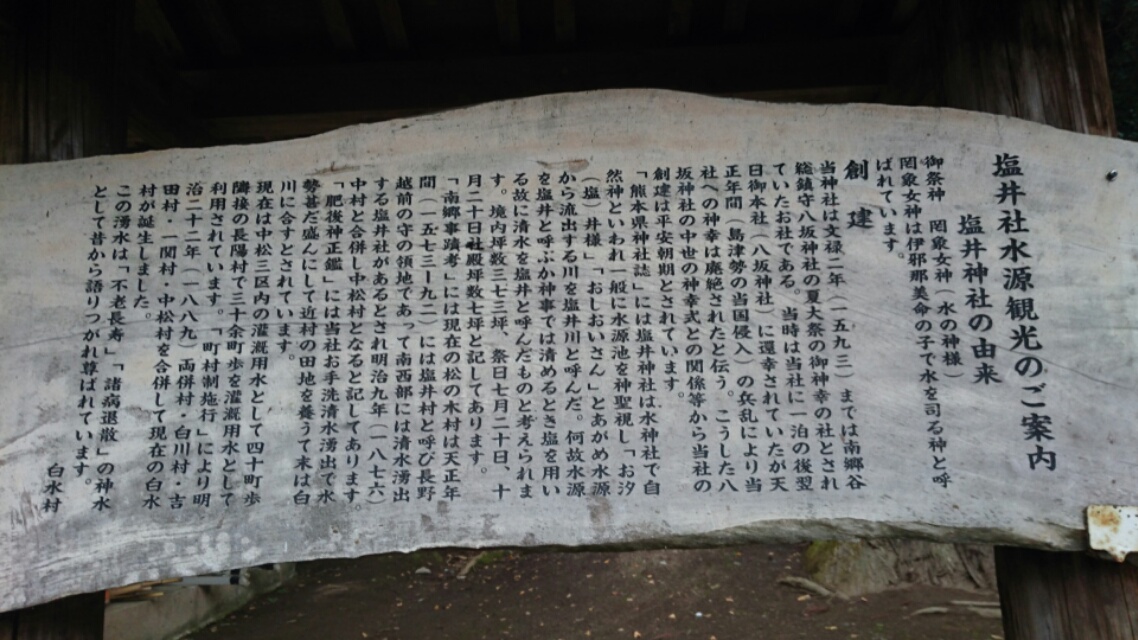 塩井社水源観光のご案内
塩井神社の由来
御祭神　罔象女神（水の神様）
罔象女神は伊邪那美命の子で水を司る神と呼
ばれています。
創建
当神社は文禄二年（一五九三）までは南郷谷
総鎮守八坂神社の夏大祭の御神幸の社とされ
ていたお社である。当時は当社に一泊の後翌
日御本社（八坂神社）に還幸されていたが天
正年間（島津勢の当国侵入）の兵乱により当
社への神幸は廃絶されたと伝う。こうした八
坂神社の中世の神幸式との関係等から当社の
創建は平安朝期とされています。
「熊本県神社誌」には塩井神社は水神社で自
然神といわれ一般に水源池を神聖視し「お汐
（塩）井様」「おしおいさん」とあがめ水源
から流出する川を塩井川と呼んだ。何故水源
を塩井と呼ぶか神事では清めるとき塩を用い
る故に清水を塩井と呼んだものと考えられま
す。境内坪数三七三坪、祭日七月二十日、十
月二十日社殿坪数七坪と記してあります。
「南郷事蹟考」には現在の松の木村は天正年
間（一五七三ー九二）には塩井村と呼び長野
越前の守の領地であって南西部には清水湧出
する塩井社があるとされ明治九年（一八七六）
中村と合併し中松村となると記してあります。
「肥後神正鑑」には当社お手洗清水湧出で水
勢甚だ盛んにして近村の田地を養うて末は白
川に合すとされています。
現在は中松三区内の灌漑用水として四十町歩
隣接の長陽村で三十余町歩を灌漑用水として
利用されています。「町村制施行」により明
治二十二年（一八八九）両併村・白川村・吉
田村・一関村・中松村を合併して現在の白水
村が誕生しました。
この湧水は「不老長寿」「諸病退散」の神水
として昔から語りつがれ尊ばれています。
白水村